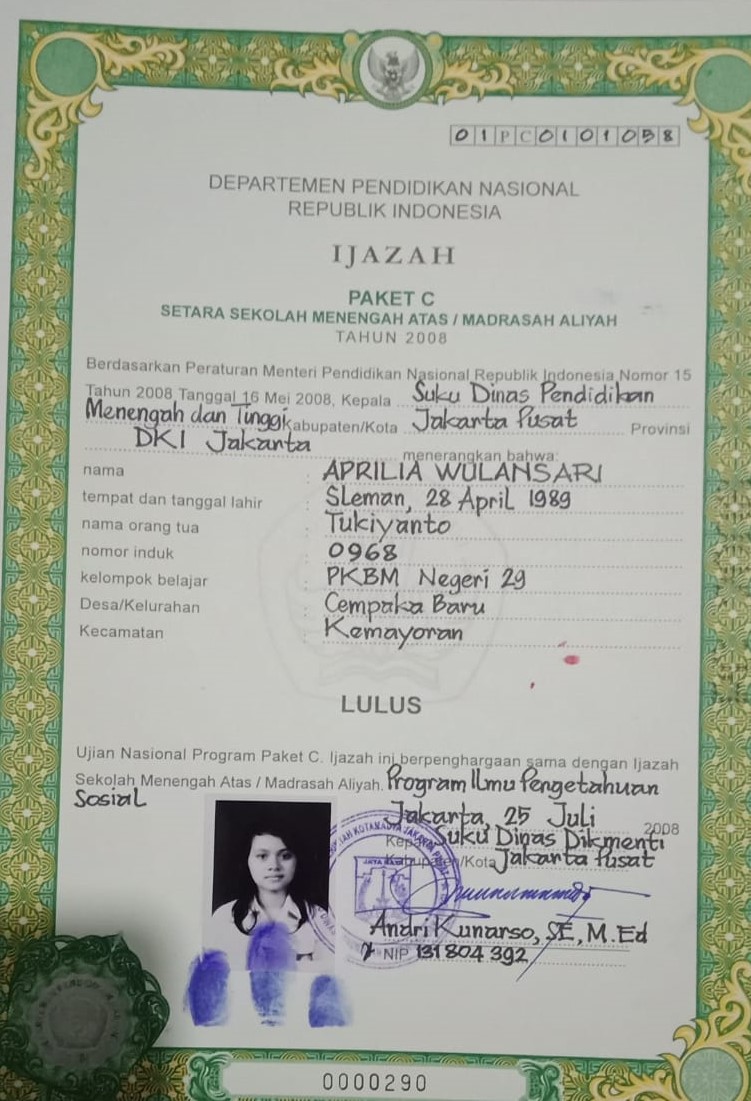 01PC0101058
DEPARTEMEN PENDIDIKAN NASIONAL
REPUBLIK INDONESIA
IJAZAH
PAKET C
SETARA SEKOLAH MENENGAH ATAS / MADRASAH ALIYAH
TAHUN 2008
Berdasarkan Peraturan Menteri Pendidikan Nasional Republik Indonesia Nomor 15
Tahun 2008 Tanggal 16 Mei 2008, Kepala Suku Dinas Pendidikan
Menengah dan Tinggi Kabupaten/Kota Jakarta Pusat Provinsi
DKI Jakarta menerangkan bahwa:
nama : APRILIA WULANSARI
tempat dan tanggal lahir : Sleman, 28 April 1989
nama orang tua : Tukiyanto
nomor induk : 0968
kelompok belajar : PKBM Negeri 29
Desa/Kelurahan : Cempaka Baru
Kecamatan : Kemayoran
LULUS
Ujian Nasional Program Paket C. Ijazah ini berpenghargaan sama dengan Ijazah
Sekolah Menengah Atas / Madrasah Aliyah. Program Ilmu Pengetahuan
Sosial
Jakarta, 25 Juli 2008
Kepala Suku Dinas Dikmenti
Kabupaten/Kota Jakarta Pusat
JAYA RAYA
Andri Kunarso, SE, M.Ed
NIP 131804392
0000290